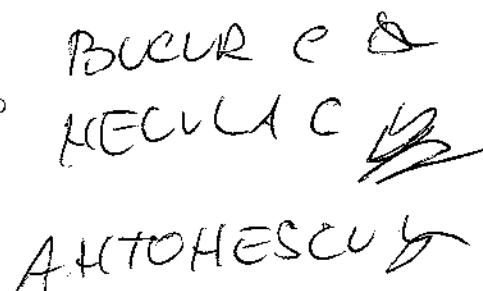 BUCUR C
NECULA C
ANTONESCU